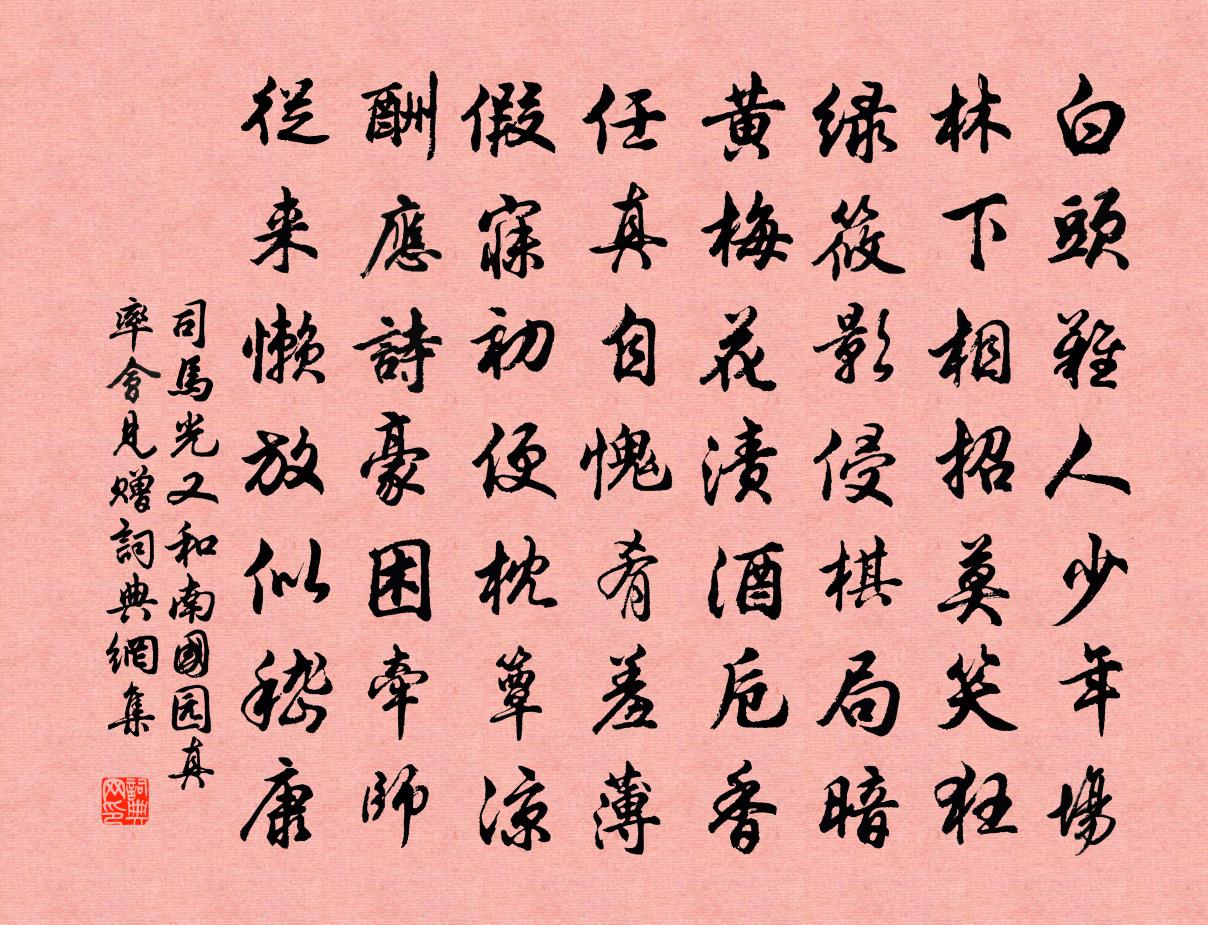 白頭難人少年場
林下相招莫笑狂
緑筱影侵棋局暗
黄梅花漬酒卮香
任真自愧肴羞薄
假寐初便枕簟凉
酬應詩豪困牽師
從来懶放似嵇康
司馬光又和南國园真
率會見贈詞典網集
詞典网印